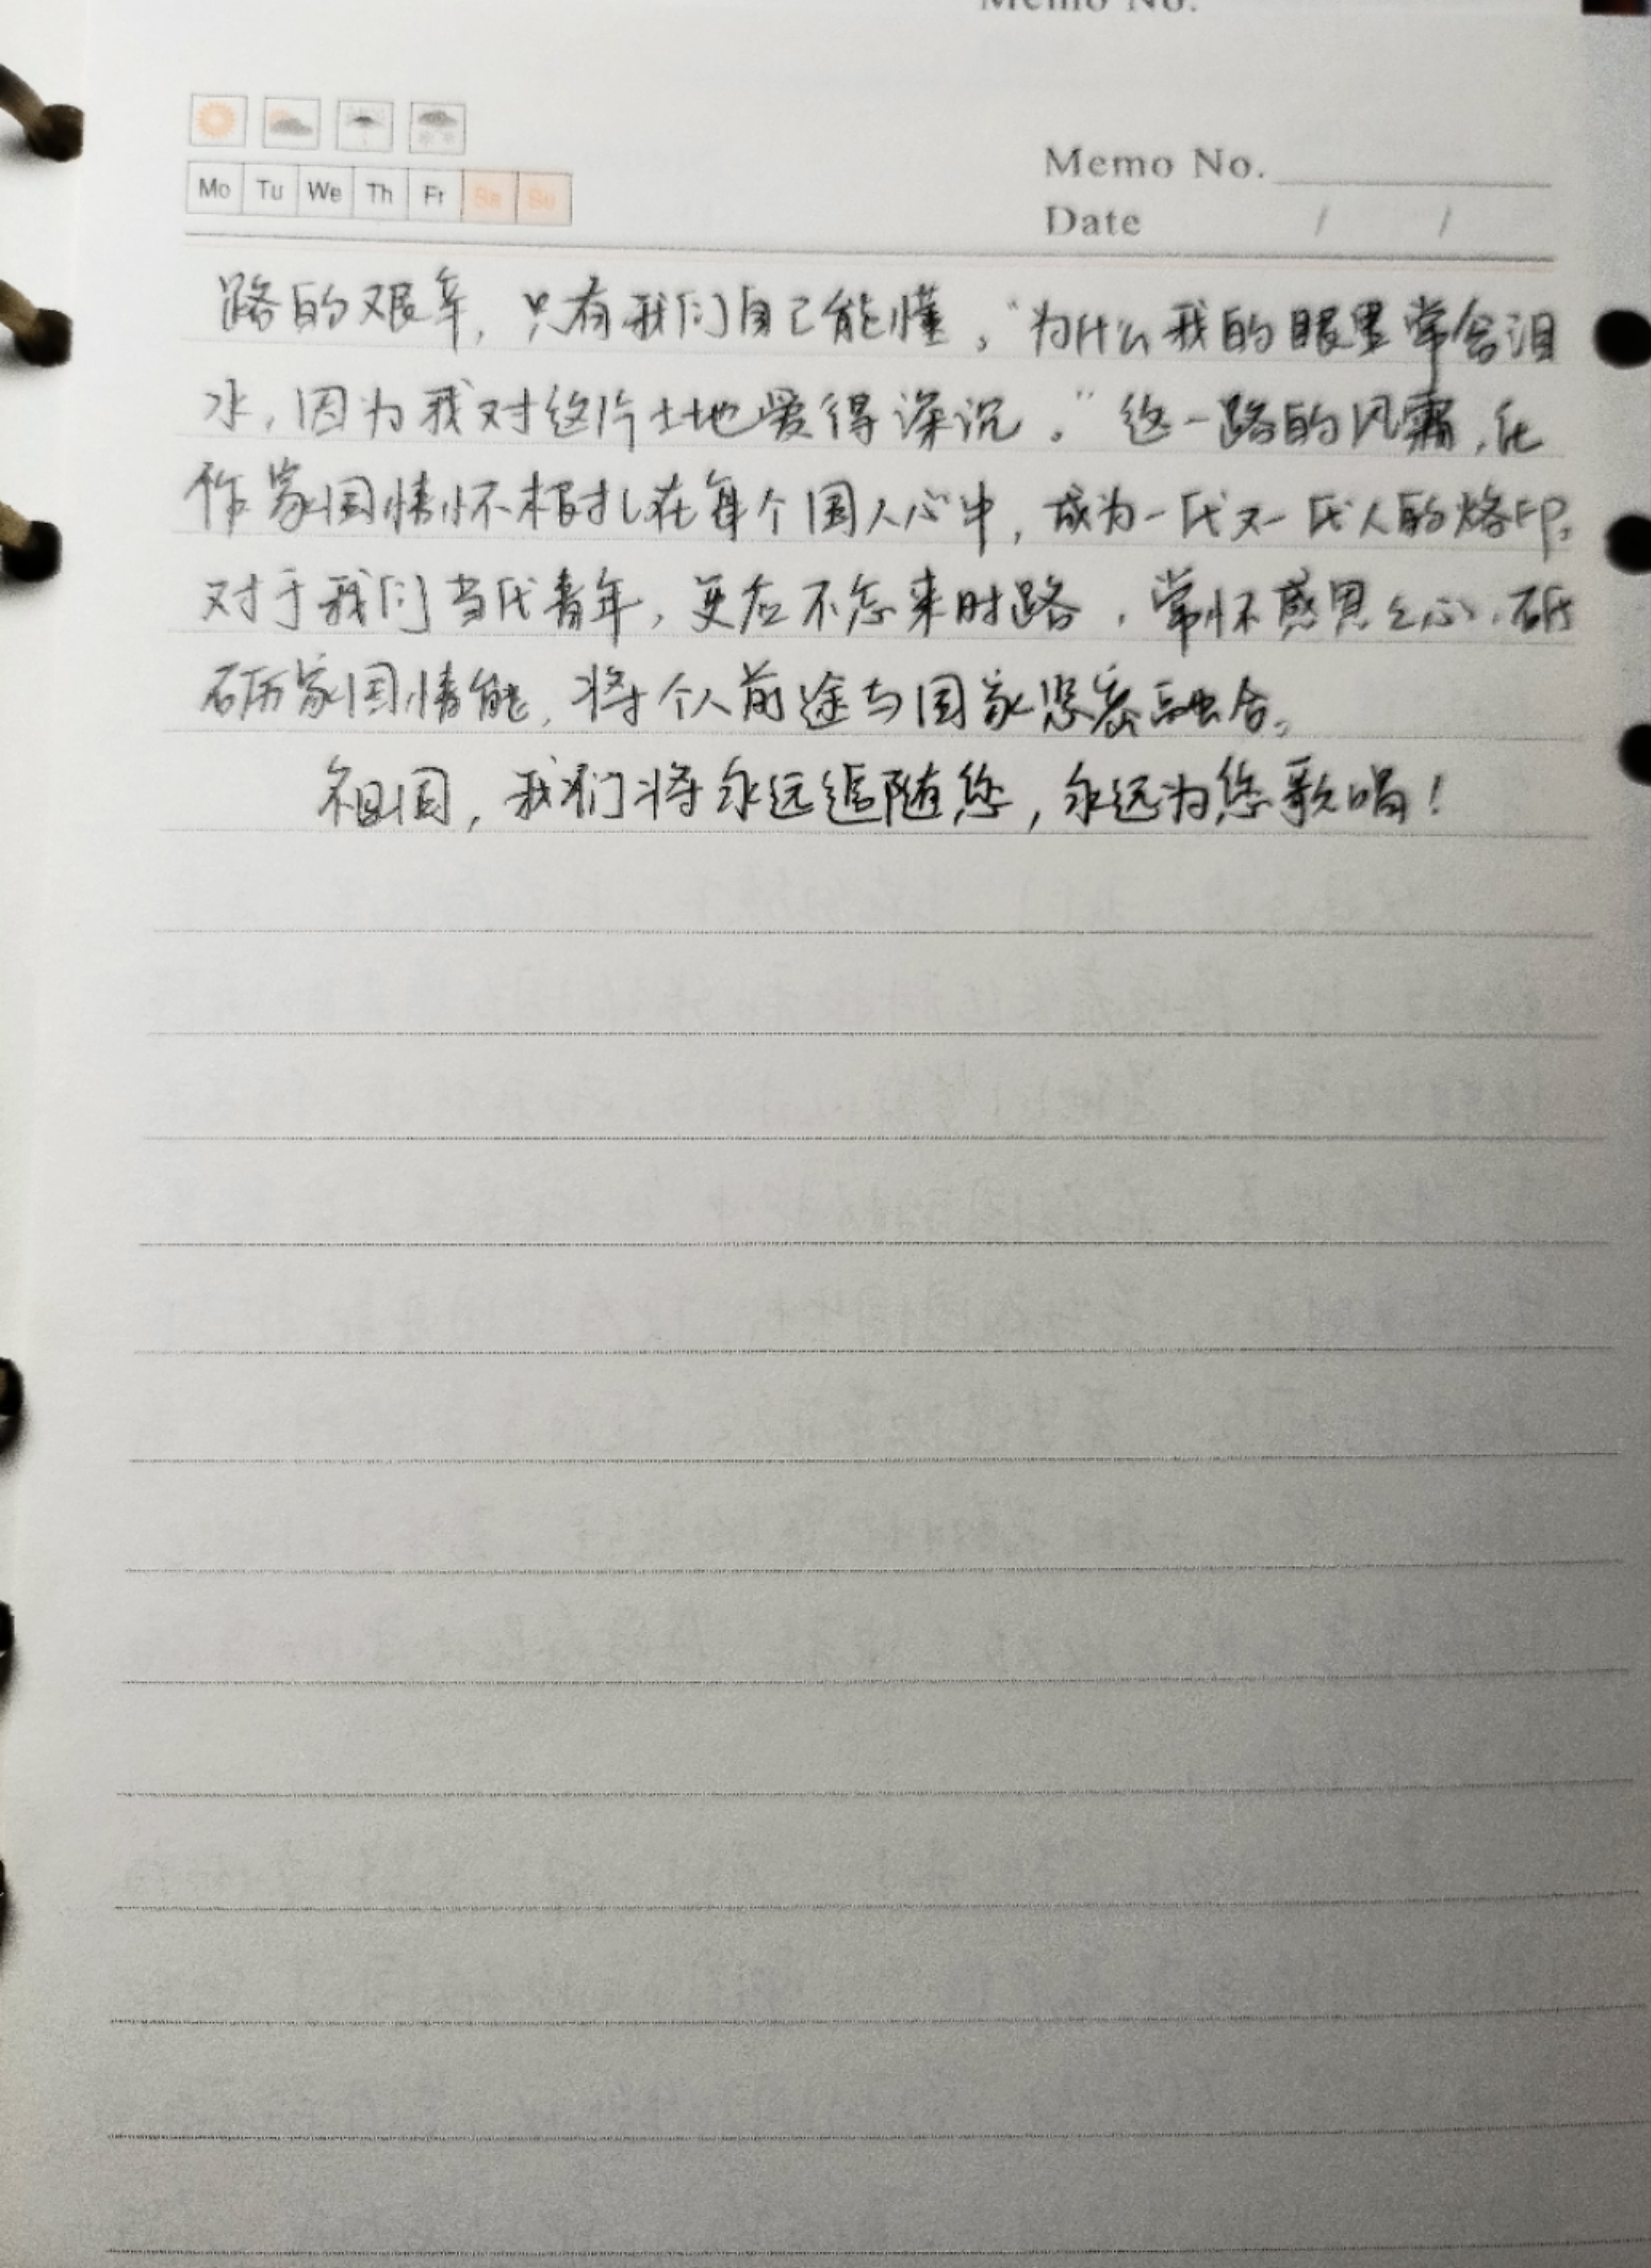 Memo No.
Mo Tu We Th Fr Sa Su
Memo No.
Date / /
路的艰辛,只有我们自己能懂。“为什么我的眼里常含泪
水,因为我对这片土地爱得深沉。”这一路的风霜,化
作家国情怀根扎在每个国人心中,成为一代又一代人的烙印。
对于我们当代青年,更应不忘来时路,常怀感恩之心,砥
砺家国情能,将个人前途与国家紧密融合。
祖国,我们将永远追随您,永远为您歌唱!